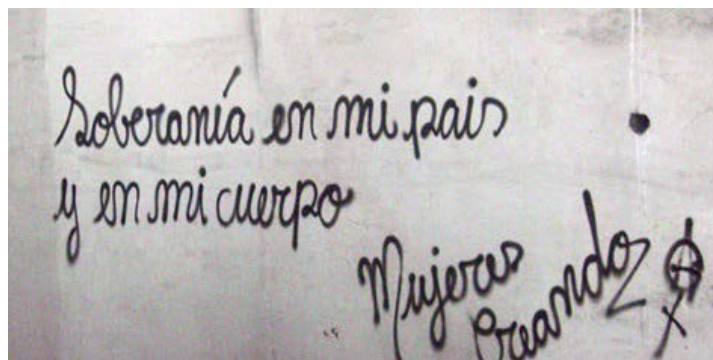 Soberanía en mi pais
y en mi cuerpo
Mujeres
Creando